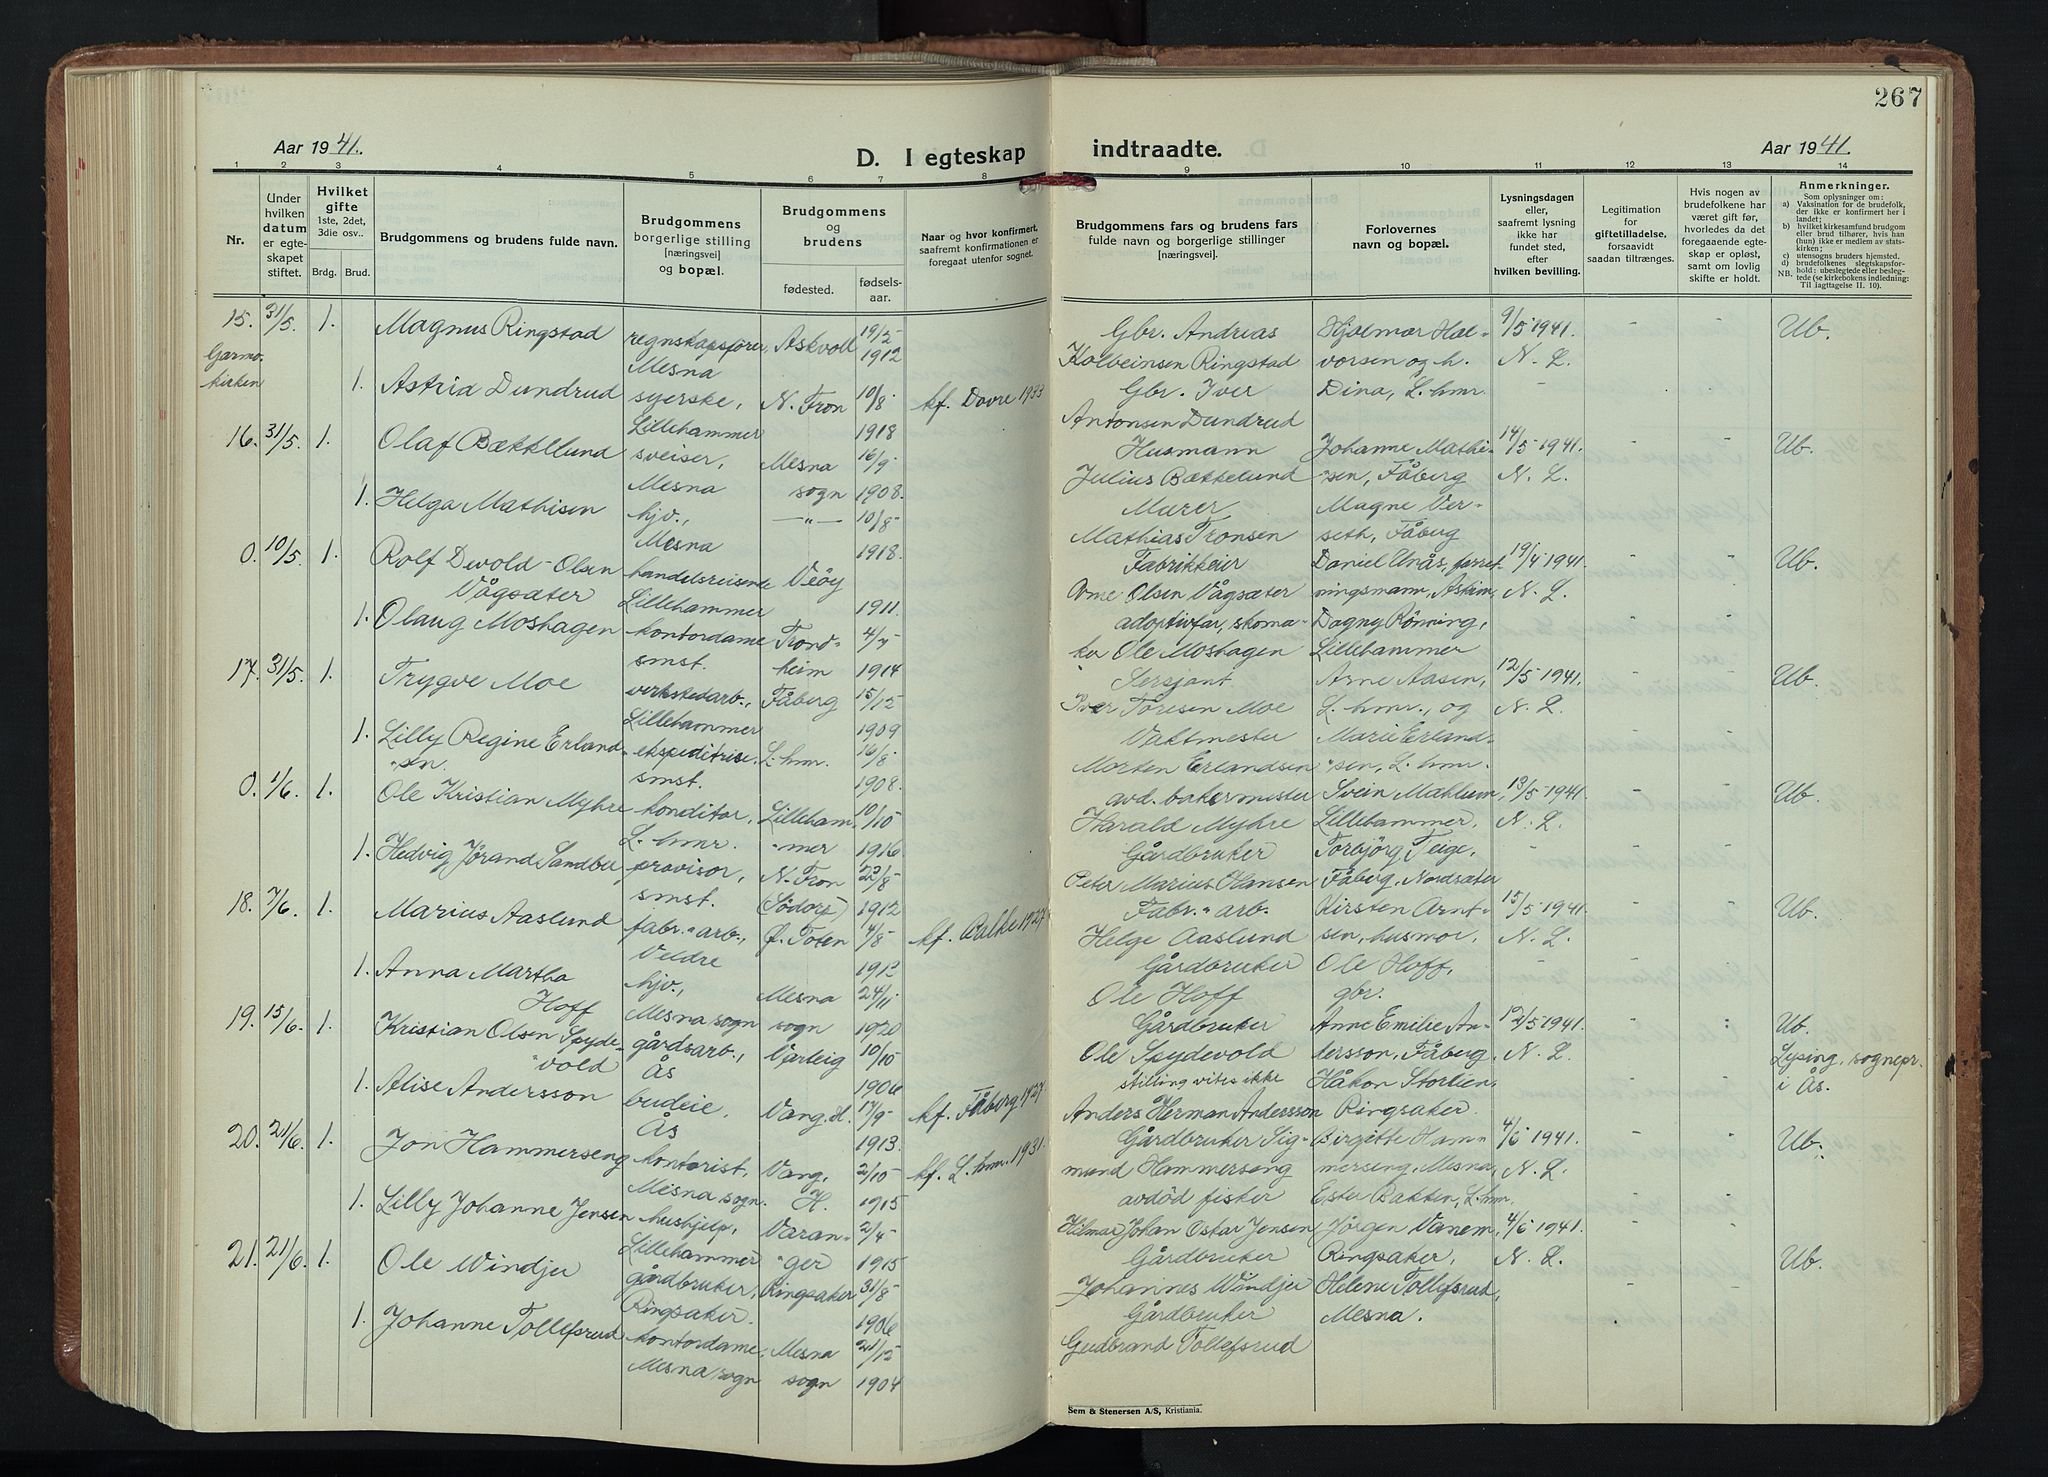 267
Aar 1941.
D. I egteskap indtraadte.
Aar 1941.
1 2 3 4 5 6 7 8 9 10 11 12 13 14
Nr.
Under hvilken datum er egteskapet stiftet.
Hvilket gifte 1ste, 2det, 3die osv..
Brdg. Brud.
Brudgommens og brudens fulde navn.
Brudgommens borgerlige stilling [næringsvei] og bopæl.
Brudgommens og brudens
fødested.
fødselsaar.
Naar og hvor konfirmert, saafremt konfirmationen er foregaat utenfor sognet.
Brudgommens fars og brudens fars fulde navn og borgerlige stillinger [næringsvei].
Forlovernes navn og bopæl.
Lysningsdagen eller, saafremt lysning ikke har fundet sted, efter hvilken bevilling.
Legitimation for giftetilladelse, forsaavidt saadan tiltrænges.
Hvis nogen av brudefolkene har været gift før, hvorledes da det foregaaende egteskap er opløst, samt om lovlig skifte er holdt.
Anmerkninger.
Som oplysninger om:
a) Vaksination for de brudefolk, der ikke er konfirmert her i landet;
b) hvilket kirkesamfund brudgom eller brud tilhører, hvis han (hun) ikke er medlem av statskirken;
c) utensogns bruders hjemsted.
d) brudefolkenes slegtskapsforhold: ubeslegtede eller beslegtede (se kirkebokens indledning: Til iagttagelse II. 10).
NB.
15. 31/5. 1. Magnus Ringstad regnskapsfører, Mesna Askvoll 19/2 1912 Gbr. Andreas Kolbeinsen Ringstad Hjalmar Halvorsen og h. 9/5 1941. N. L. Ub.
Garmokirken
1. Astrid Dundrud syerske, Lillehammer N. Fron 10/8 1918 kf. Dovre 1933 Gbr. Iver Antonsen Dundrud Dina, L.hmr.
16. 31/5. 1. Olaf Bækkllund sveiser, Mesna Mesna sogn 16/9 1908. Husmann Julius Bækkelund Johanne Mathisen, Fåberg 14/5 1941. N. L. Ub.
1. Helga Mathisen hjv., Mesna —"— 10/8 1918. Murer Mathias Tronsen Magne Verseth, Fåberg
0. 10/5. 1. Rolf Devold-Olsen Vågsæter handelsreisende Lillehammer Veøy 1911. Fabrikkeier Arne Olsen Vågsæter Daniel Unås, forretningsmann, Askim, 19/4 1941. N. L. Ub.
1. Olaug Moshagen kontordame smst. Trondheim 4/7 1914 adoptivfar, skomaker Ole Moshagen Dagny Rönning, Lillehammer
17. 31/5. 1. Trygve Moe verkstedarb., Lillehammer Fåberg 15/12 1909 Sersjant Iver Toresen Moe Arne Aasen, L.hmr., og 12/5 1941. N. L. Ub.
1. Lilly Regine Erlandsn. ekspeditrise, smst. L.hmr. 16/8 1908. Vaktmester Morten Erlandsen Marie Erlandsen, L.hmr.
0. 1/6. 1. Ole Kristian Myhre konditor, L.hmr. Lillehammer 10/10 1916 avd. bakermester Harald Myhre Svein Mæhlum, Lillehammer, 13/5 1941. N. L. Ub.
1. Hedvig Jørand Sandbu provisor, smst. N. Fron (Södorp) 23/8 1912 Gårdbruker Peter Marius Hansen Torbjörg Teige, Fåberg, Nordsæter
18. 7/6. 1. Marius Aaslund fabr.arb., Veldre Ø. Toten 4/8 1913 kf. Balke 1927 Fabr.arb. Helge Aaslund Kirsten Arntsen, husmor. 15/5 1941. N. L. Ub.
1. Anna Martha Hoff hjv., Mesna sogn Mesna sogn 24/11 1920 Gårdbruker Ole Hoff Ole Hoff, gbr.
19. 15/6. 1. Kristian Olsen Spydevold gårdsarb., Ås Varteig 10/10 1906 Gårdbruker Ole Spydevold Anne Emilie Andersson, Fåberg. 12/5 1941. N. L. Ub. Lysing, sognepr. i Ås.
1. Alise Andersson budeie, Ås Vang. H. 17/9 1913. kf. Fåberg 1927 stilling vites ikke Anders Herman Andersson Håkon Storlien, Ringsaker.
20. 21/6. 1. Jon Hammerseng kontorist, Mesna sogn. Vang, H. 2/10 1915 kf. L.hmr. 1931. Gårdbruker Sigmund Hammerseng Birgitte Hammerseng, Mesna, 4/6 1941. N. L. Ub.
1. Lilly Johanne Jensen hushjelp, Lillehammer Varanger 2/4 1915 avdöd fisker Hilmar Johan Oskar Jensen Ester Bakken, L.hmr.
21. 21/6. 1. Ole Windju gårdbruker, Ringsaker. Ringsaker 31/8 1906 Gårdbruker Johannes Windju Jörgen Vanem, Ringsaker, 4/6 1941. N. L. Ub.
1. Johanne Tollefsrud kontordame, Mesna sogn Mesna sogn 21/12 1904 Gårdbruker Gudbrand Tollefsrud Helene Tollefsrud, Mesna.
Sem & Stenersen A/S, Kristiania.